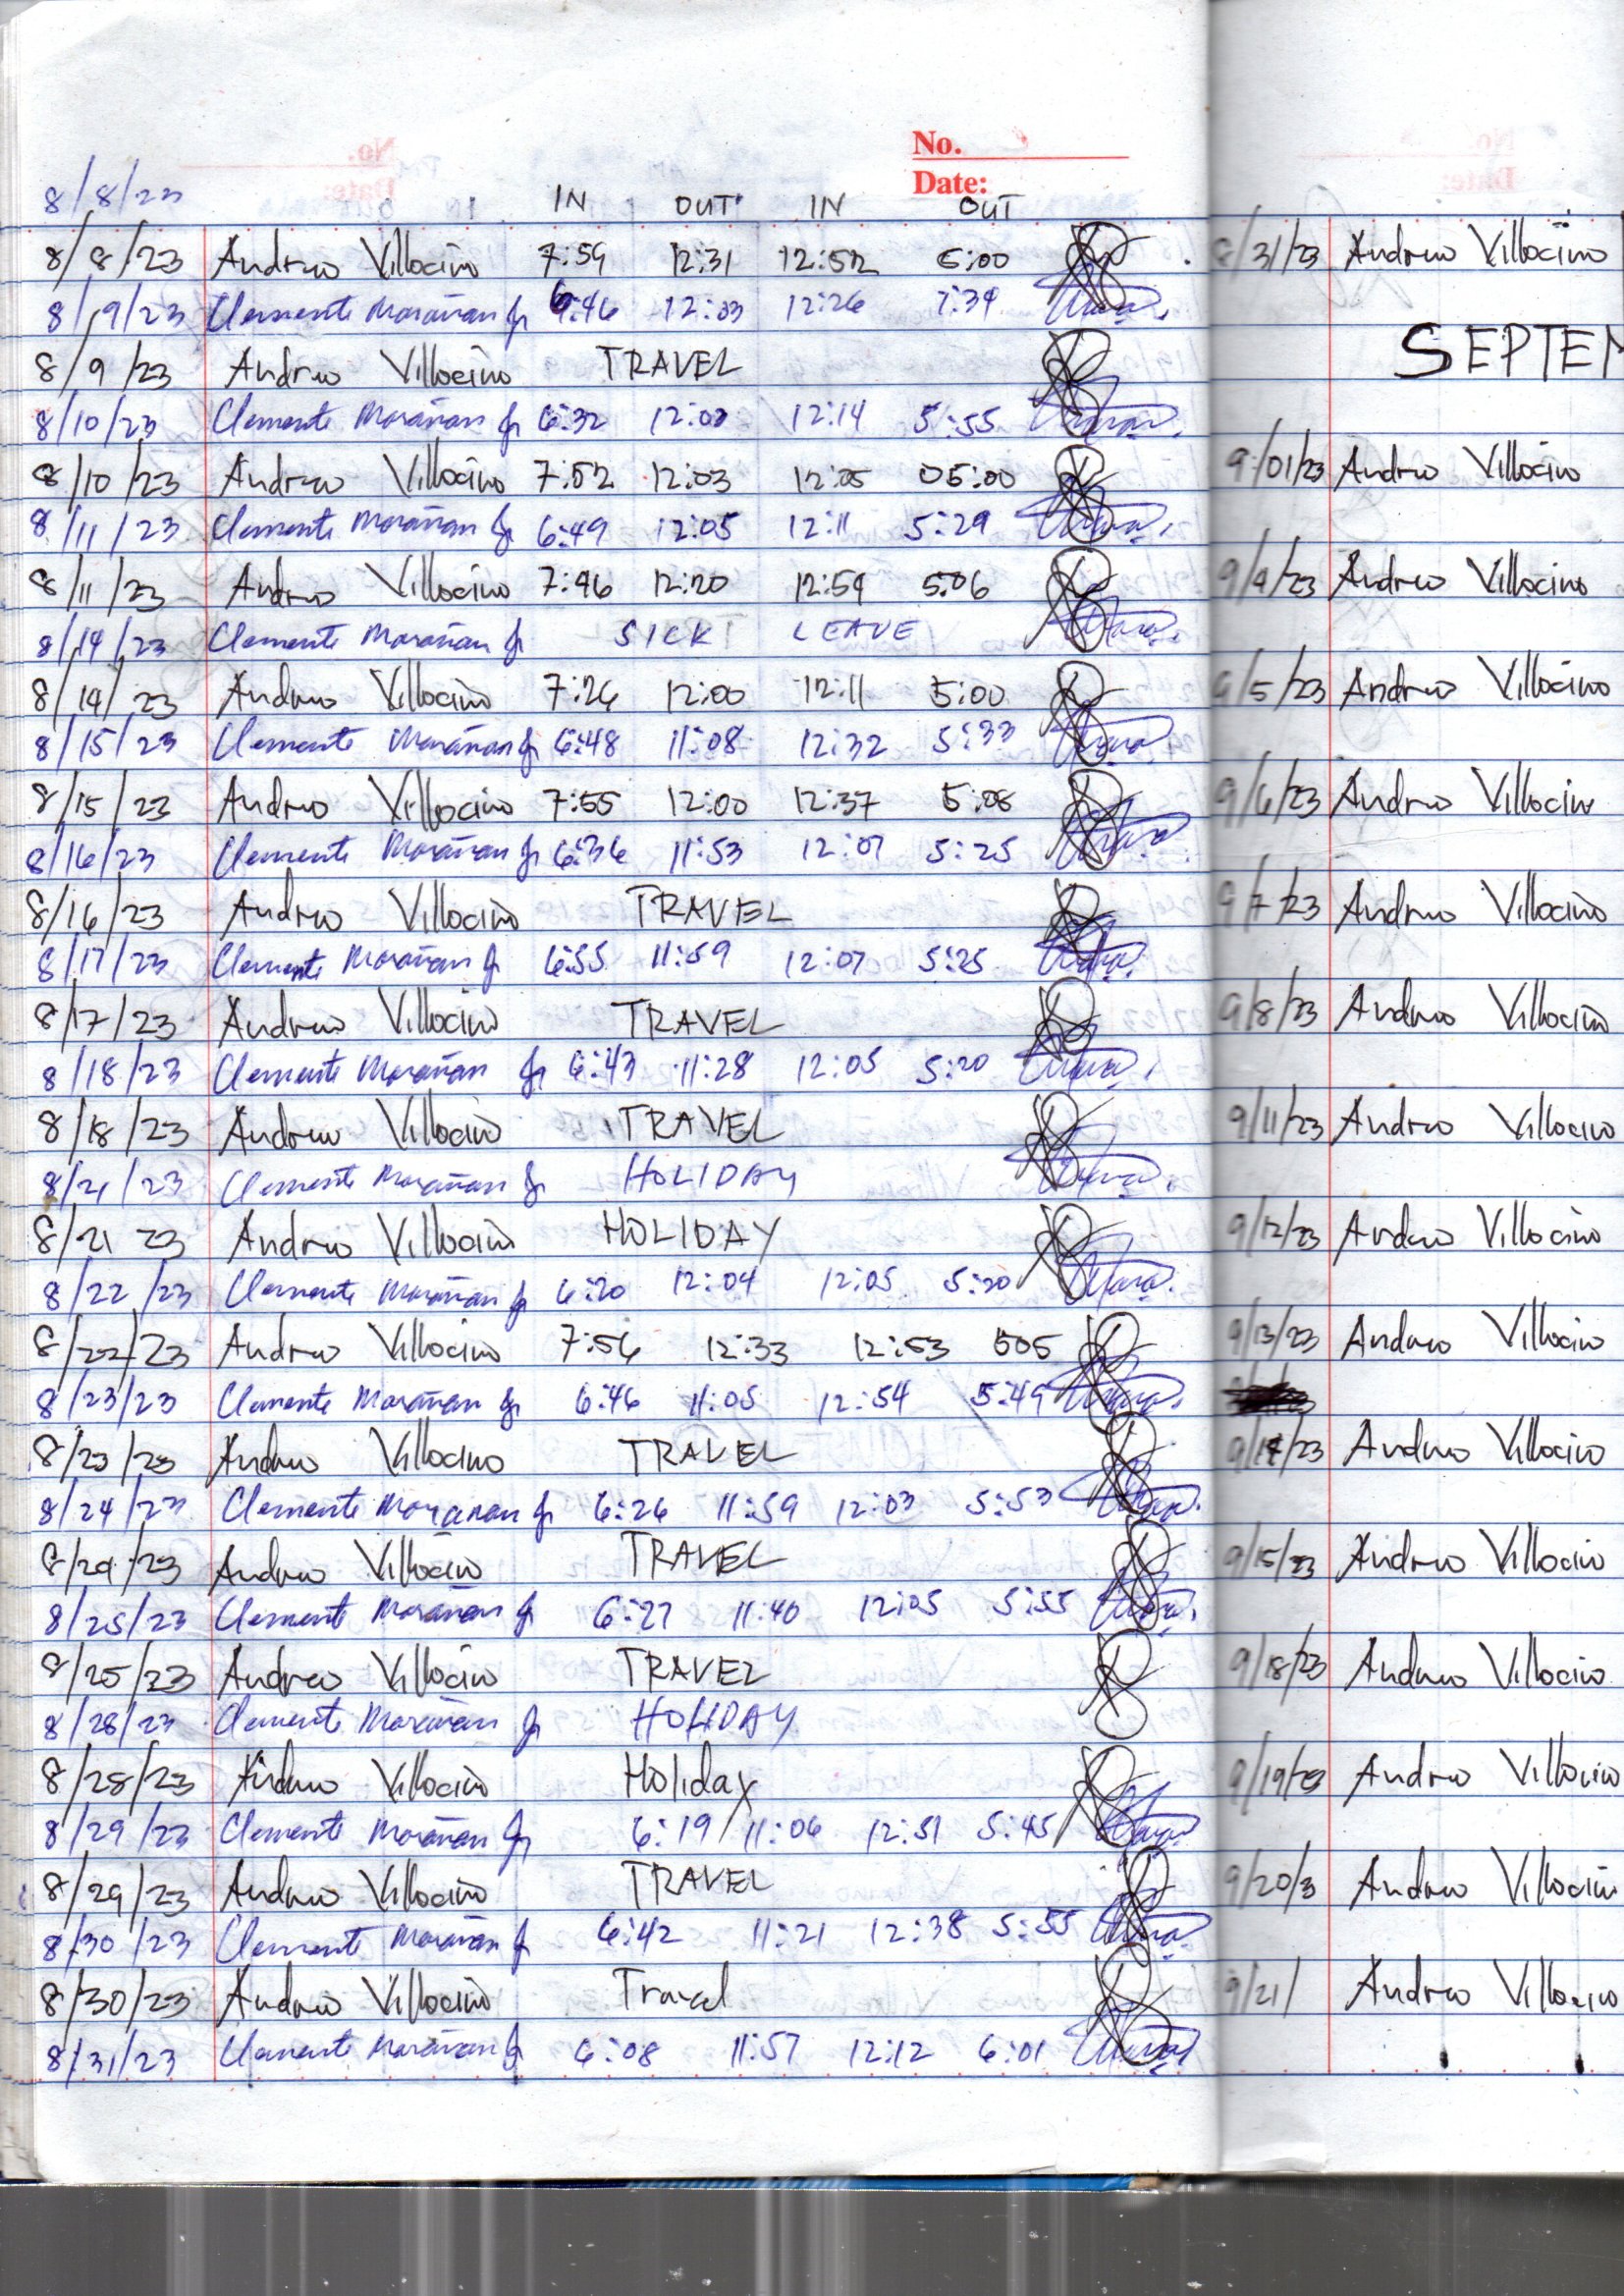 No.
Date:
8/8/23 IN OUT IN OUT
8/8/23 Andrew Villocino 7:59 12:31 12:52 5:00
8/9/23 Clemente Morañan Jr 6:46 12:03 12:26 7:34
8/9/23 Andrew Villocino TRAVEL
8/10/23 Clemente Morañan Jr 6:32 12:00 12:14 5:55
8/10/23 Andrew Villocino 7:52 12:03 12:05 05:00
8/11/23 Clemente Morañan Jr 6:49 12:05 12:11 5:29
8/11/23 Andrew Villocino 7:46 12:20 12:59 5:06
8/14/23 Clemente Morañan Jr SICK LEAVE
8/14/23 Andrew Villocino 7:26 12:00 12:11 5:00
8/15/23 Clemente Morañan Jr 6:48 11:08 12:32 5:33
8/15/23 Andrew Villocino 7:55 12:00 12:37 5:08
8/16/23 Clemente Morañan Jr 6:36 11:53 12:07 5:25
8/16/23 Andrew Villocino TRAVEL
8/17/23 Clemente Morañan Jr 6:55 11:59 12:07 5:25
8/17/23 Andrew Villocino TRAVEL
8/18/23 Clemente Morañan Jr 6:43 11:28 12:05 5:20
8/18/23 Andrew Villocino TRAVEL
8/21/23 Clemente Morañan Jr HOLIDAY
8/21 23 Andrew Villocino HOLIDAY
8/22/23 Clemente Morañan Jr 6:20 12:04 12:05 5:20
8/22/23 Andrew Villocino 7:56 12:33 12:53 505
8/23/23 Clemente Morañan Jr 6:46 11:05 12:54 5:49
8/23/23 Andrew Villocino TRAVEL
8/24/23 Clemente Morañan Jr 6:26 11:59 12:03 5:53
8/24/23 Andrew Villocino TRAVEL
8/25/23 Clemente Morañan Jr 6:27 11:40 12:05 5:55
8/25/23 Andrew Villocino TRAVEL
8/28/23 Clemente Morañan Jr HOLIDAY
8/28/23 Andrew Villocino Holiday
8/29/23 Clemente Morañan Jr 6:19 11:06 12:51 5:45
8/29/23 Andrew Villocino TRAVEL
8/30/23 Clemente Morañan Jr 6:42 11:21 12:38 5:55
8/30/23 Andrew Villocino Travel
8/31/23 Clemente Morañan Jr 6:08 11:57 12:12 6:01
8/31/23 Andrew Villocino
SEPTEM
9/01/23 Andrew Villocino
9/4/23 Andrew Villocino
9/5/23 Andrew Villocino
9/6/23 Andrew Villocino
9/7/23 Andrew Villocino
9/8/23 Andrew Villocino
9/11/23 Andrew Villocino
9/12/23 Andrew Villocino
9/13/23 Andrew Villocino
9/14/23 Andrew Villocino
9/15/23 Andrew Villocino
9/18/23 Andrew Villocino
9/19/23 Andrew Villocino
9/20/3 Andrew Villocino
9/21/ Andrew Villocino